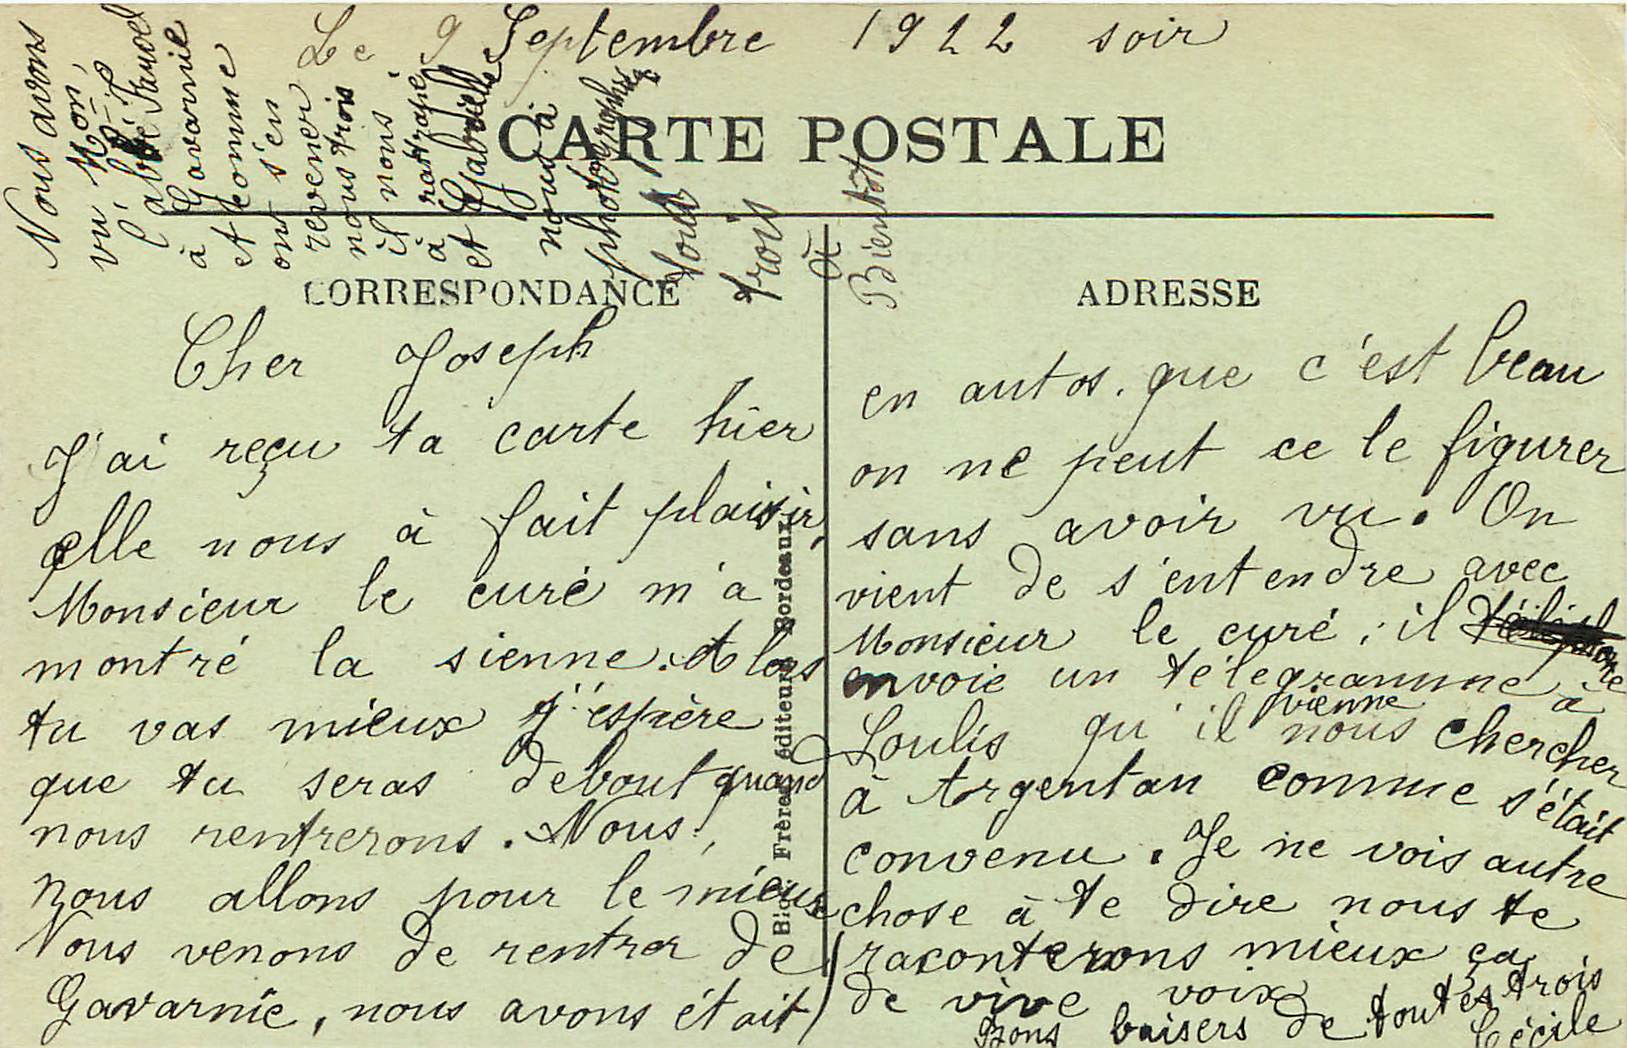 Le 9 Septembre 1922 soir
CARTE POSTALE
CORRESPONDANCE
ADRESSE
Cher Joseph
J'ai reçu ta carte hier
elle nous à fait plaisir,
Monsieur le curé m'a
montré la sienne. Alors
tu vas mieux j'espère
que tu seras debout quand
nous rentrerons. Nous,
nous allons pour le mieux
Nous venons de rentrer de
Gavarnie, nous avons était
en autos. que c'est beau
on ne peut ce le figurer
sans avoir vu. On
vient de s'entendre avec
Monsieur le curé, il téléphone
envoie un télégramme à
Loulis qu'il vienne nous chercher
à Argentan comme s'était
convenu. Je ne vois autre
chose à te dire nous te
raconterons mieux ça
de vive voix
Bons baisers de toutes trois
Cécile
Nous avons
vu Mon,
l'abbé
à Gavarnie
et comme
on s'en
revener
nous trois
il nous
à rattrapé
et Gabrielle
nous à
photographié
tous
trois
à
Bientôt
Frères éditeurs Bordeaux